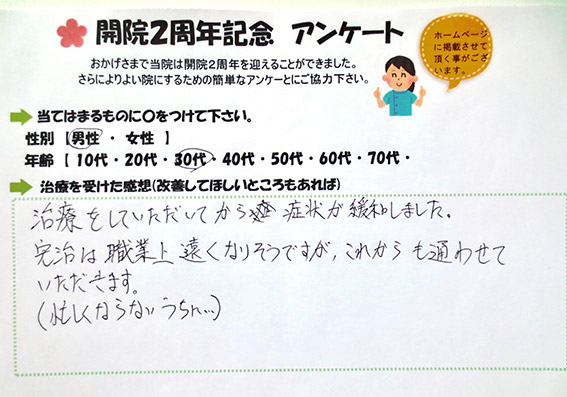 開院2周年記念 アンケート
おかげさまで当院は開院2周年を迎えることができました。
さらによりよい院にするための簡単なアンケーとにご協力下さい。
ホームページ
に掲載させて
頂く事がござ
います。
当てはまるものに〇をつけて下さい。
性別 【男性 ・ 女性 】
年齢 【 10代・20代・30代・40代・50代・60代・70代・
治療を受けた感想(改善してほしいところもあれば)
治療をしていただいてから 症状が緩和しました。
完治は職業上遠くなりそうですが、これからも通わせて
いただきます。
(忙しくならないうちに...)